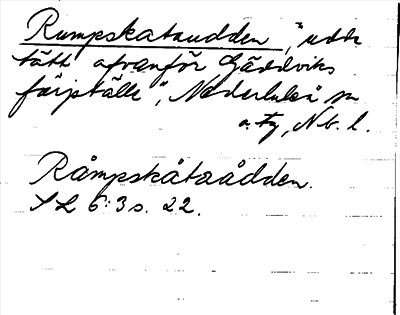 Rumpskataudden, "udde
tätt ofvanför Gäddviks
färjställe", Nederluleå sn
o. tg, Nb. l.
Råmpskåtaådden.
SL 6:3 s. 22.